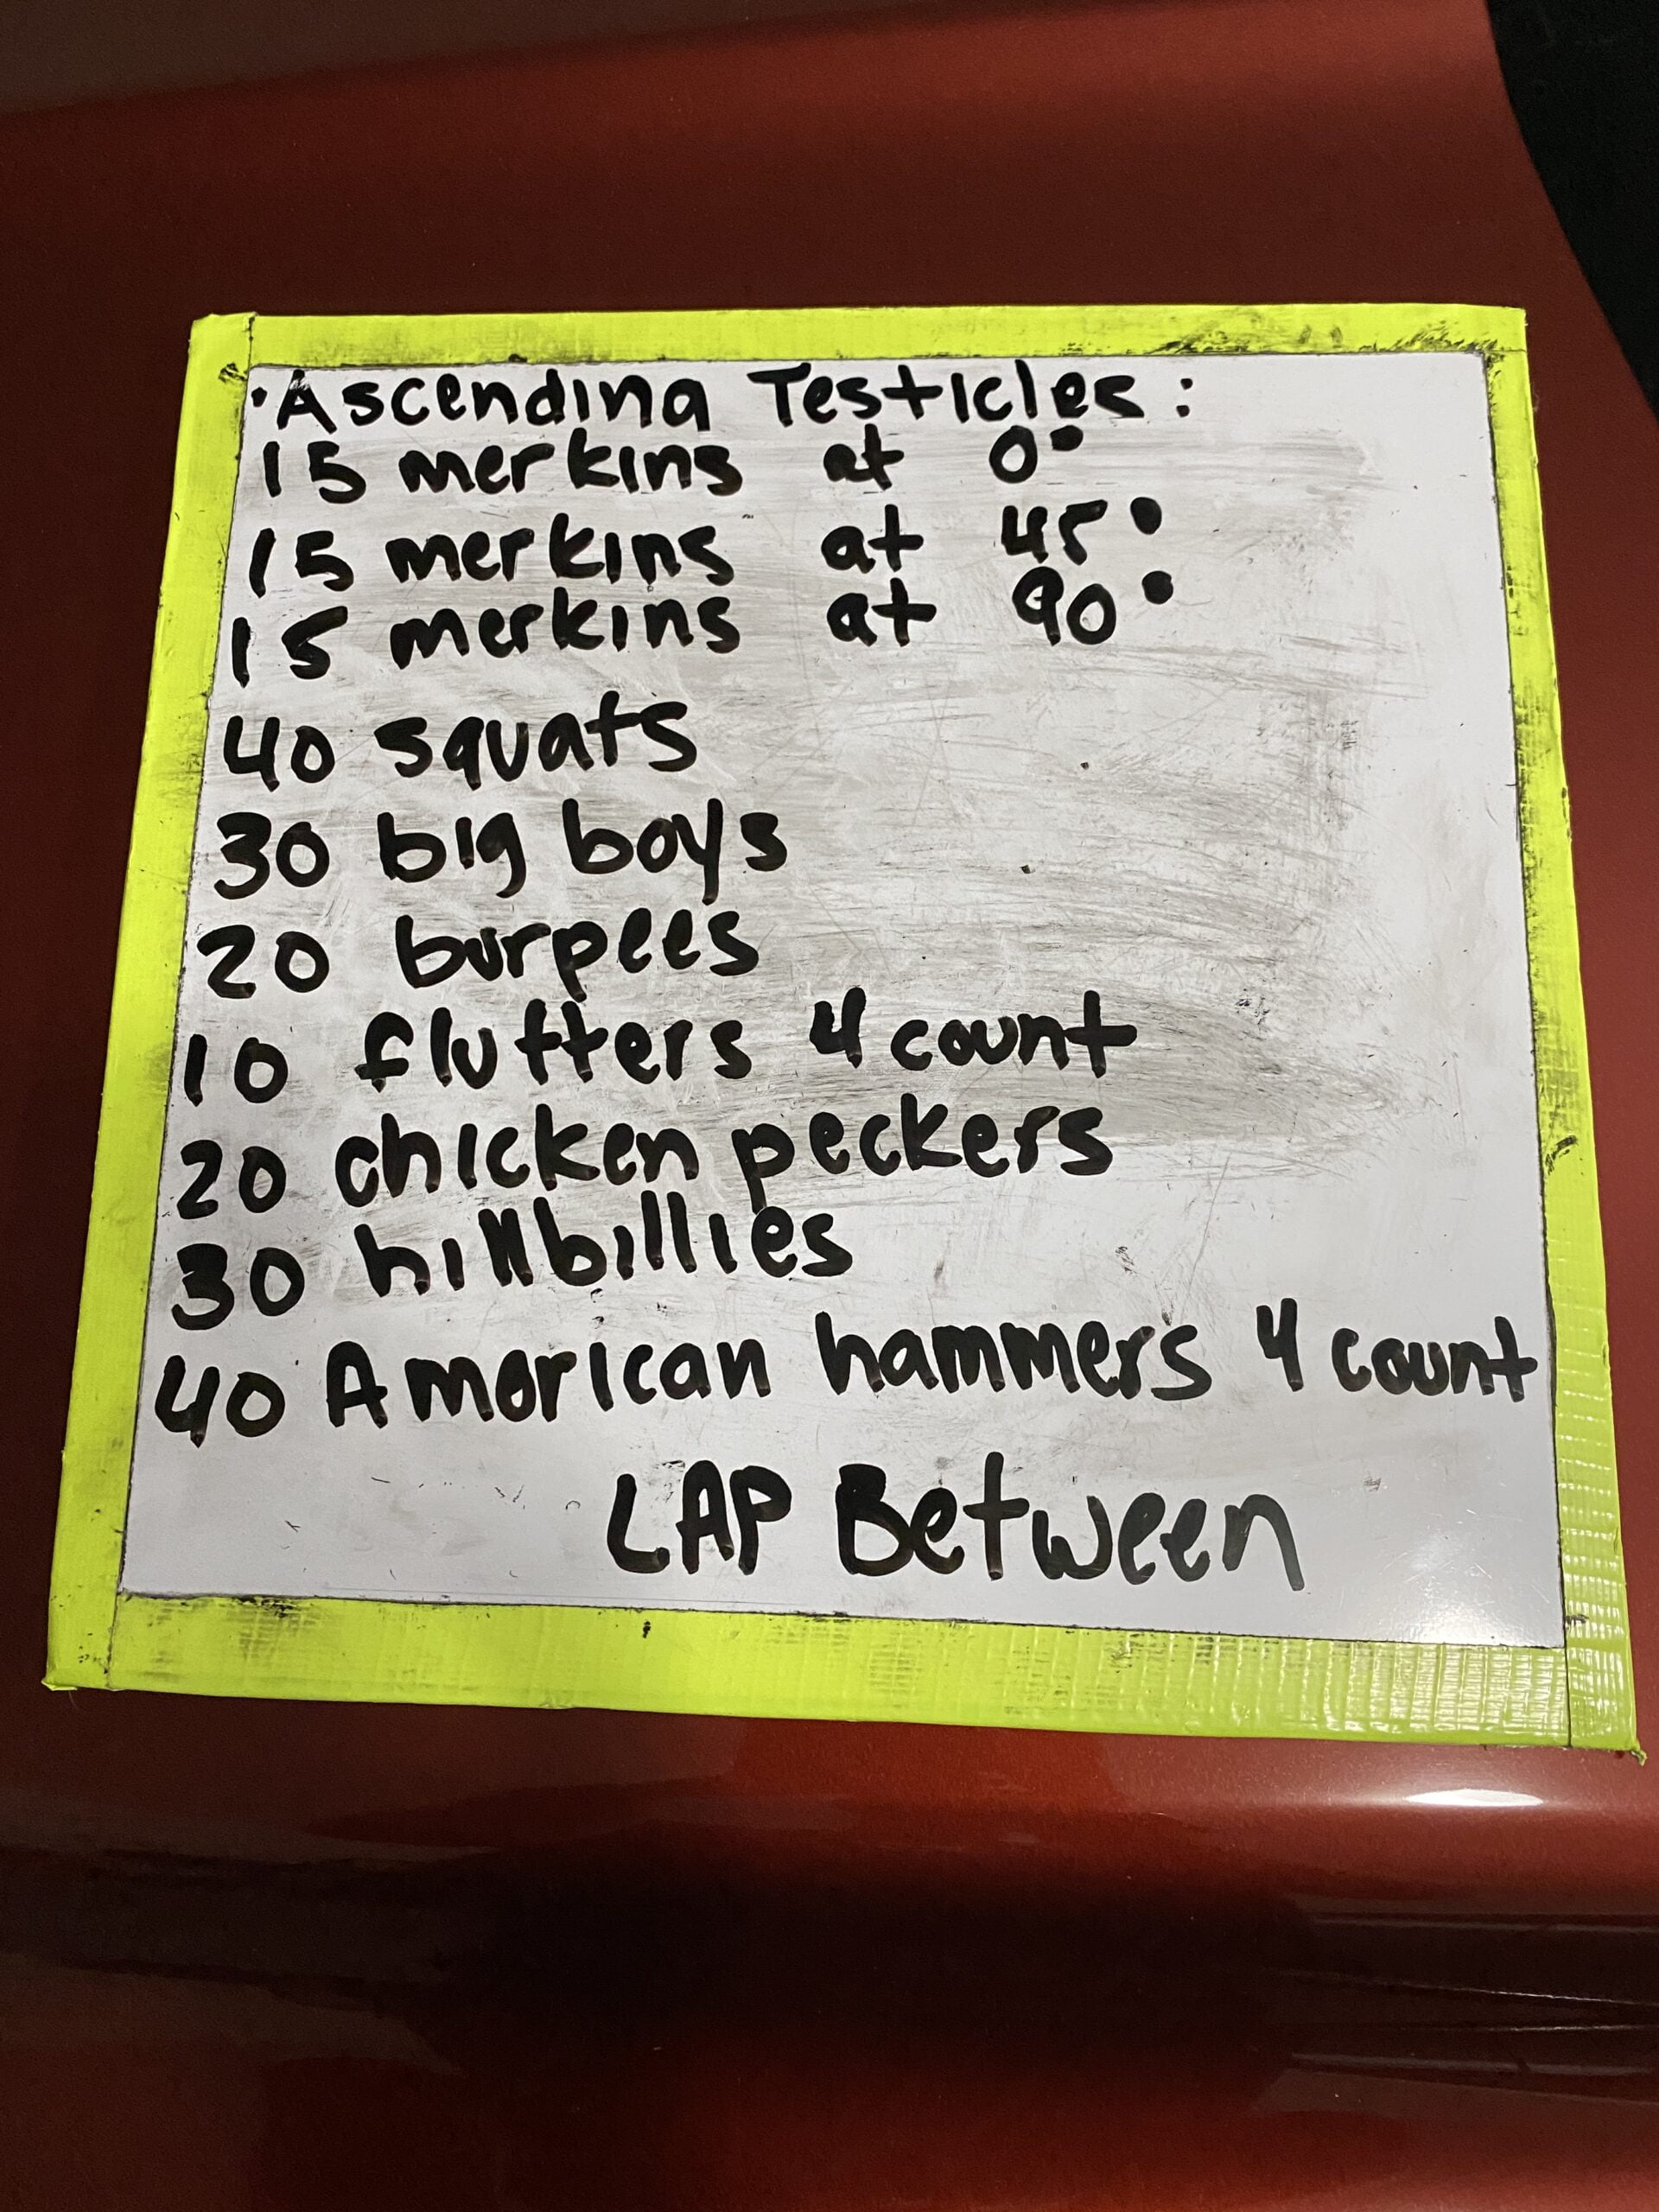 ·Ascending Testicles:
15 merkins at 0°
15 merkins at 45°
15 merkins at 90°
40 squats
30 big boys
20 burpees
10 flutters 4 count
20 chicken peckers
30 hillbillies
40 American hammers 4 count
LAP Between